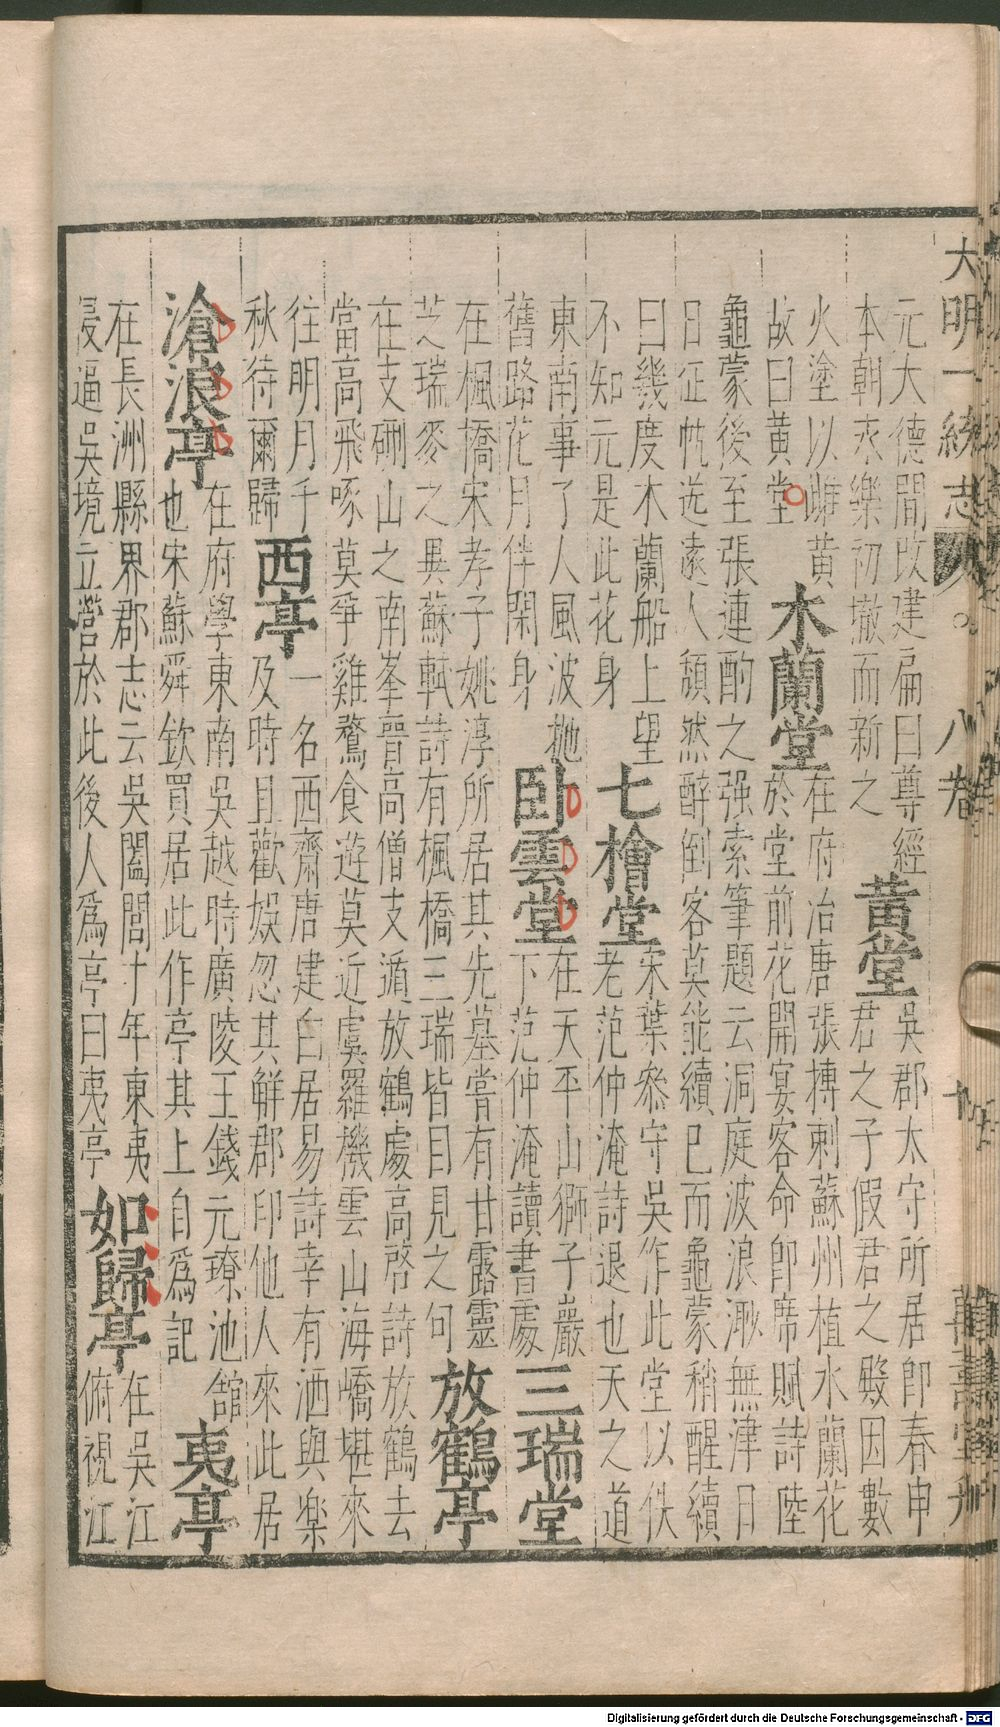 大明一統志 八卷 十 萬壽堂刊
元大德間改建扁曰尊經
本朝永樂初撤而新之
黄堂
吳郡太守所居即春申
君之子假君之殿因數
火塗以雌黄
故曰黄堂
木蘭堂
在府治唐張摶刺蘇州植木蘭花
於堂前花開宴客命即席賦詩陸
龜蒙後至張連酌之强索筆題云洞庭波浪渺無津日
日征帆送遠人頹然醉倒客莫能續已而龜蒙稍醒續
曰幾度木蘭船上望
不知元是此花身
七檜堂
宋葉叅守吳作此堂以佚
老范仲淹詩退也天之道
東南事了人風波抛
舊路花月伴閑身
卧雲堂
在天平山獅子巖
下范仲淹讀書處
三瑞堂
在楓橋宋孝子姚淳所居其先墓嘗有甘露靈
芝瑞麥之異蘇軾詩有楓橋三瑞皆目見之句
放鶴亭
在支硎山之南峯晋高僧支遁放鶴處高啓詩放鶴去
當高飛啄莫爭雞鶩食遊莫近虞羅機雲山海嶠堪來
往明月千
秋待爾歸
西亭
一名西齋唐建白居易詩幸有洒與樂
及時且歡娛忽其解郡印他人來此居
滄浪亭
在府學東南吳越時廣陵王錢元璙池舘
也宋蘇舜欽買居此作亭其上自爲記
夷亭
在長洲縣界郡志云吳闔閭十年東夷
侵逼吳境立營於此後人爲亭曰夷亭
如歸亭
在吳江
俯視江
Digitalisierung gefördert durch die Deutsche Forschungsgemeinschaft - DFG